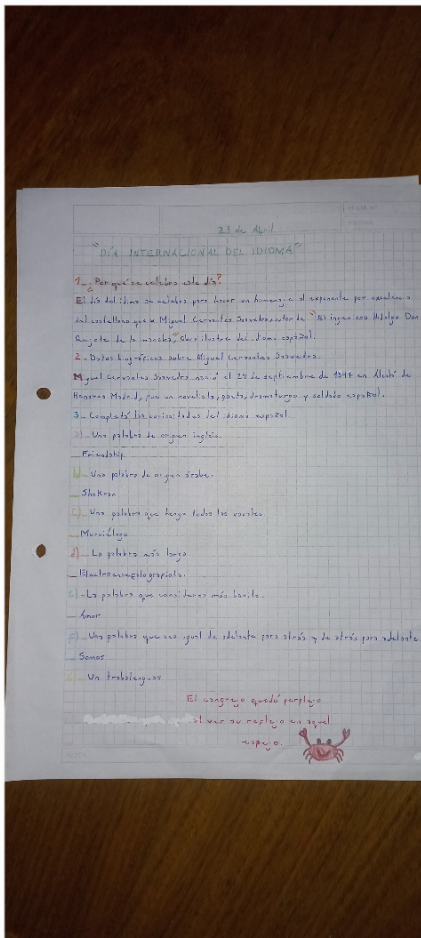 23 de Abril
"DÍA INTERNACIONAL DEL IDIOMA"
1_ ¿Por qué se celebra este día?
El día del idioma se celebra para hacer un homenaje al exponente por excelencia
del castellano que es Miguel Cervantes Saavedra, autor de "El ingenioso Hidalgo Don
Quijote de la mancha", obra ilustre del idioma español.
2_ Datos biográficos sobre Miguel Cervantes Saavedra.
Miguel Cervantes Saavedra nació el 29 de septiembre de 1547 en Alcalá de
Henares Madrid, fue un novelista, poeta, dramaturgo y soldado español.
3_ Completá las curiosidades del idioma español
a)_ Una palabra de origen inglés.
_ Friendship
b)_ Una palabra de origen árabe.
_ Shukran
c)_ Una palabra que tenga todas las vocales.
_ Murciélago
d)_ La palabra más larga
_ Electroencefalografista.
e)_ La palabra que consideres más bonita.
_ Amor
f)_ Una palabra que sea igual de adelante para atrás y de atrás para adelante
_ Somos
g)_ Un trabalenguas
El cangrejo quedó perplejo
al ver su reflejo en aquel
espejo.